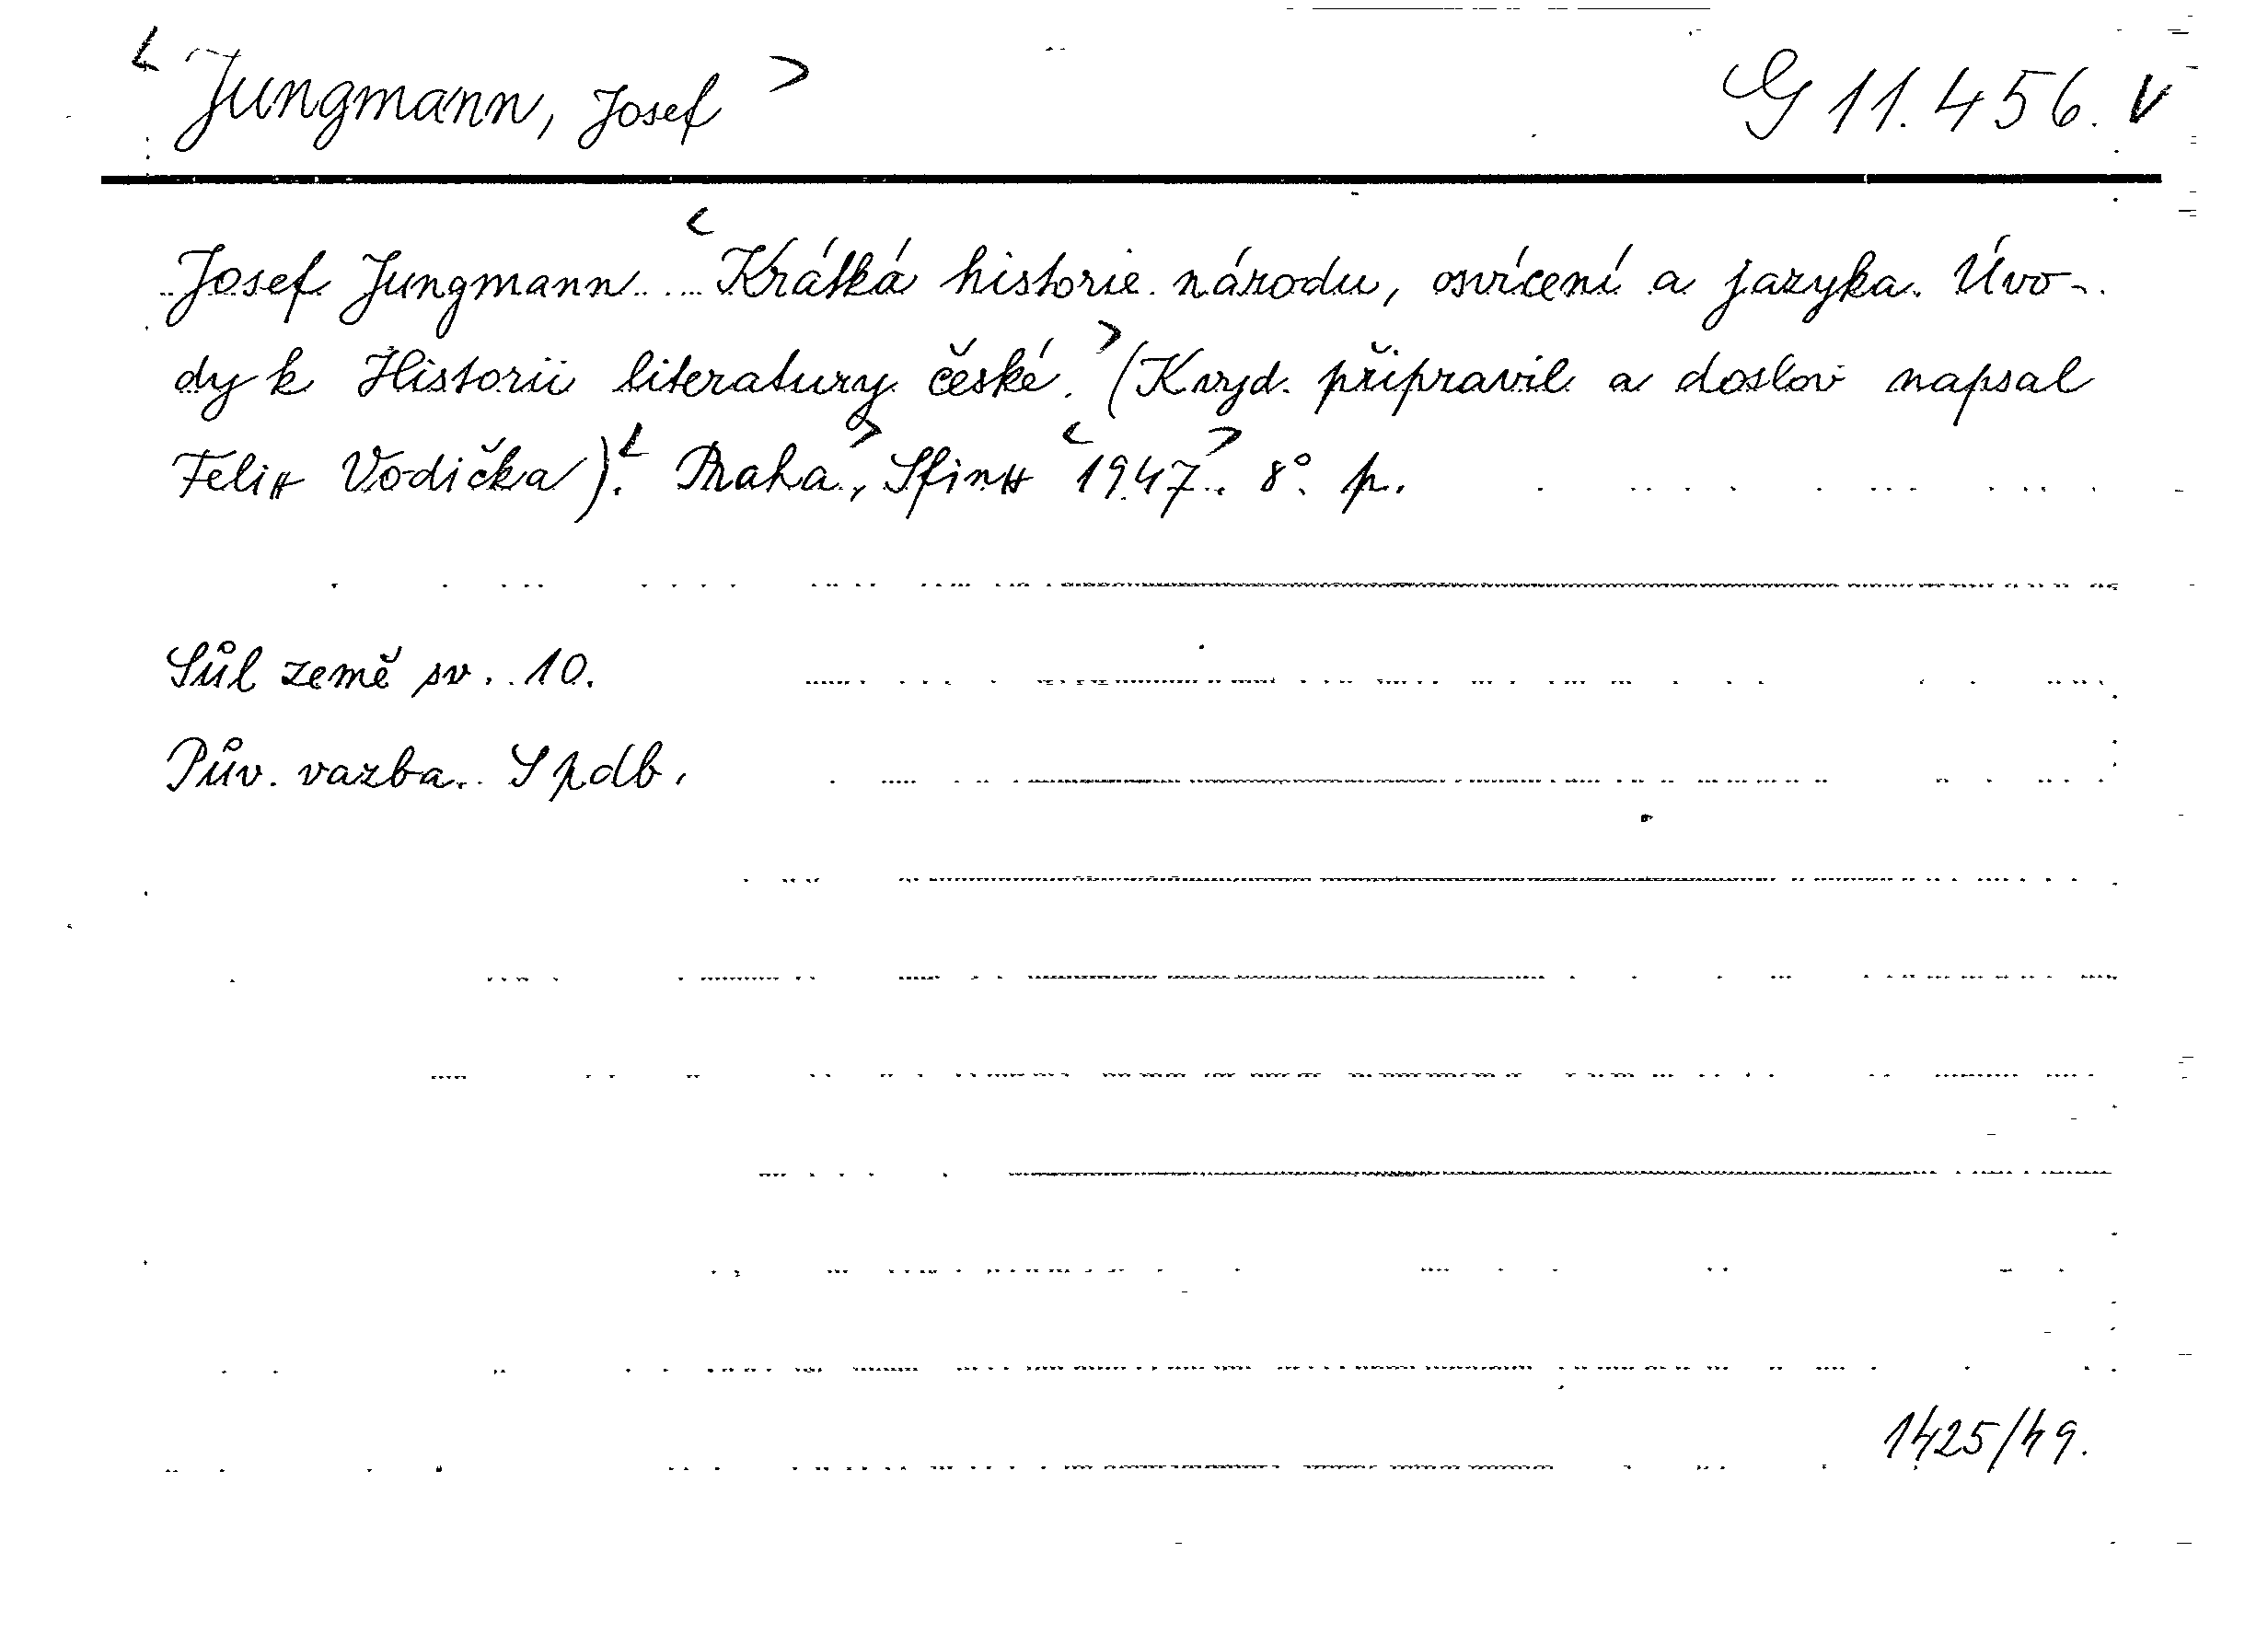 < Jungmann, Josef > G 11.456. V
Josef Jungmann... < Krátká historie národu, osvícení a jazyka. Úvo-
dy k Historii literatury české. > (K vyd. připravil a doslov napsal
Felix Vodička). < Praha >, Sfinx < 1947 >. 8°. p.
Sůl země sv. 10.
Pův. vazba. S pdb.
1425/49.